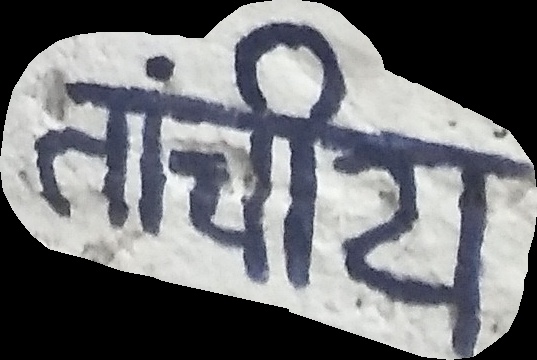 तांचीय